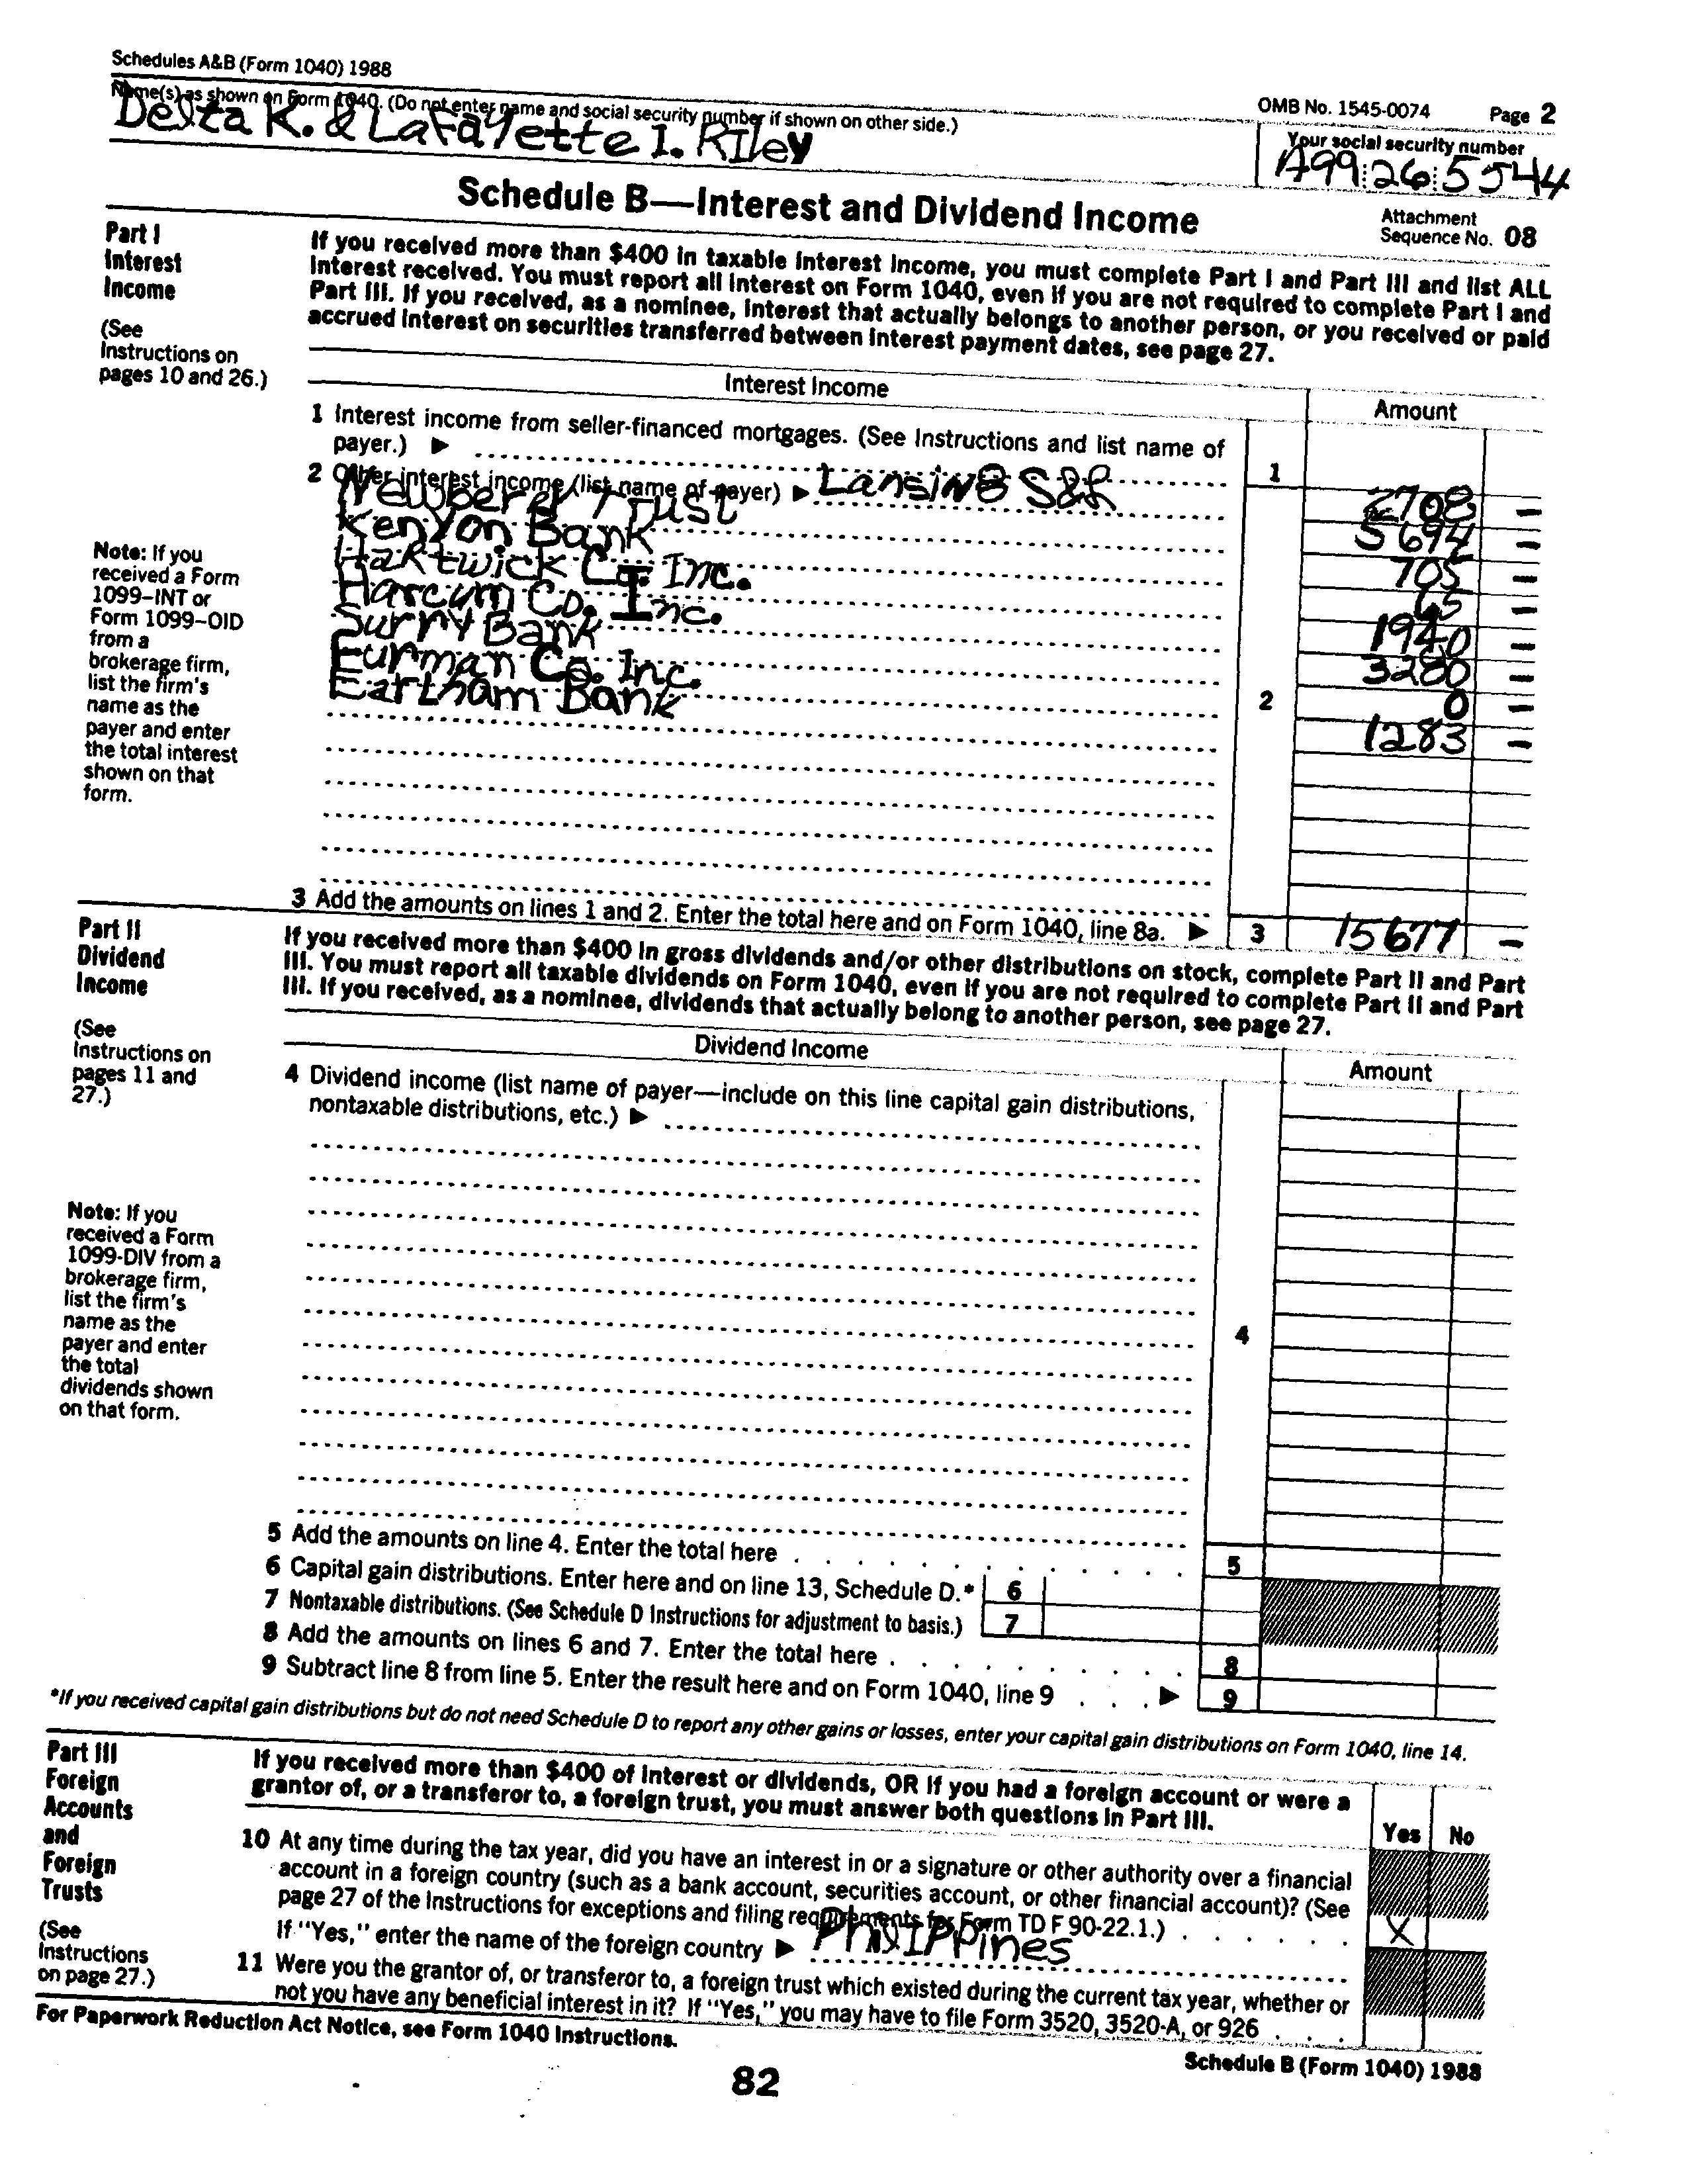 Schedules A&B (Form 1040) 1988
OMB No. 1545-0074 Page 2
Name(s) as shown on Form 1040. (Do not enter name and social security number if shown on other side.)
Delta K. & LaFayette I. Riley
Your social security number
A99:26:5544
Schedule B—Interest and Dividend Income
Attachment
Sequence No. 08
Part I
Interest
Income
(See
Instructions on
pages 10 and 26.)
If you received more than $400 in taxable interest income, you must complete Part I and Part III and list ALL
interest received. You must report all interest on Form 1040, even if you are not required to complete Part I and
Part III. If you received, as a nominee, interest that actually belongs to another person, or you received or paid
accrued interest on securities transferred between interest payment dates, see page 27.
Interest Income
Amount
1 Interest income from seller-financed mortgages. (See Instructions and list name of
payer.) ▶
1
2 Other interest income (list name of payer) ▶ Lansing S&L
2708 —
Newberry Trust
5694 —
Kenyon Bank
705 —
Hartwick Co. Inc.
65 —
Harcum Co. Inc.
1940 —
Surry Bank
3280 —
Furman Co. Inc.
0 —
Eartham Bank
1283 —
2
Note: If you
received a Form
1099–INT or
Form 1099–OID
from a
brokerage firm,
list the firm's
name as the
payer and enter
the total interest
shown on that
form.
3 Add the amounts on lines 1 and 2. Enter the total here and on Form 1040, line 8a. ▶ 3 15677 —
Part II
Dividend
Income
(See
Instructions on
pages 11 and
27.)
If you received more than $400 in gross dividends and/or other distributions on stock, complete Part II and Part
III. You must report all taxable dividends on Form 1040, even if you are not required to complete Part II and Part
III. If you received, as a nominee, dividends that actually belong to another person, see page 27.
Dividend Income
Amount
4 Dividend income (list name of payer—include on this line capital gain distributions,
nontaxable distributions, etc.) ▶
4
Note: If you
received a Form
1099-DIV from a
brokerage firm,
list the firm's
name as the
payer and enter
the total
dividends shown
on that form.
5 Add the amounts on line 4. Enter the total here . . . . . . . . . . 5
6 Capital gain distributions. Enter here and on line 13, Schedule D.* 6
7 Nontaxable distributions. (See Schedule D Instructions for adjustment to basis.) 7
8 Add the amounts on lines 6 and 7. Enter the total here . . . . . . . . . . 8
9 Subtract line 8 from line 5. Enter the result here and on Form 1040, line 9 . . . ▶ 9
*If you received capital gain distributions but do not need Schedule D to report any other gains or losses, enter your capital gain distributions on Form 1040, line 14.
Part III
Foreign
Accounts
and
Foreign
Trusts
(See
Instructions
on page 27.)
If you received more than $400 of interest or dividends, OR if you had a foreign account or were a
grantor of, or a transferor to, a foreign trust, you must answer both questions in Part III.
Yes No
10 At any time during the tax year, did you have an interest in or a signature or other authority over a financial
account in a foreign country (such as a bank account, securities account, or other financial account)? (See
page 27 of the Instructions for exceptions and filing requirements for Form TD F 90-22.1.) . . . . . . X
If "Yes," enter the name of the foreign country ▶ Philippines
11 Were you the grantor of, or transferor to, a foreign trust which existed during the current tax year, whether or
not you have any beneficial interest in it? If "Yes," you may have to file Form 3520, 3520-A, or 926 . . .
For Paperwork Reduction Act Notice, see Form 1040 Instructions.
Schedule B (Form 1040) 1988
82